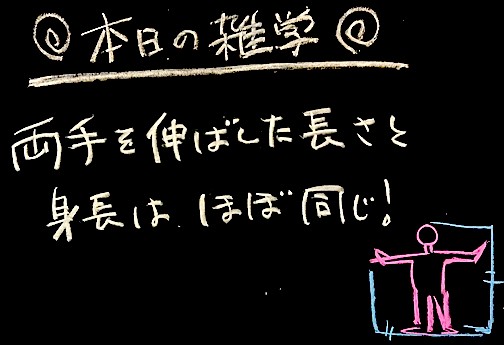 本日の雑学
両手を伸ばした長さと
身長は、ほぼ同じ!